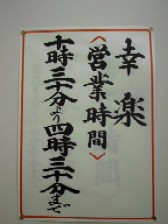 幸楽
〈営業時間〉
十時三十分より四時三十分まで